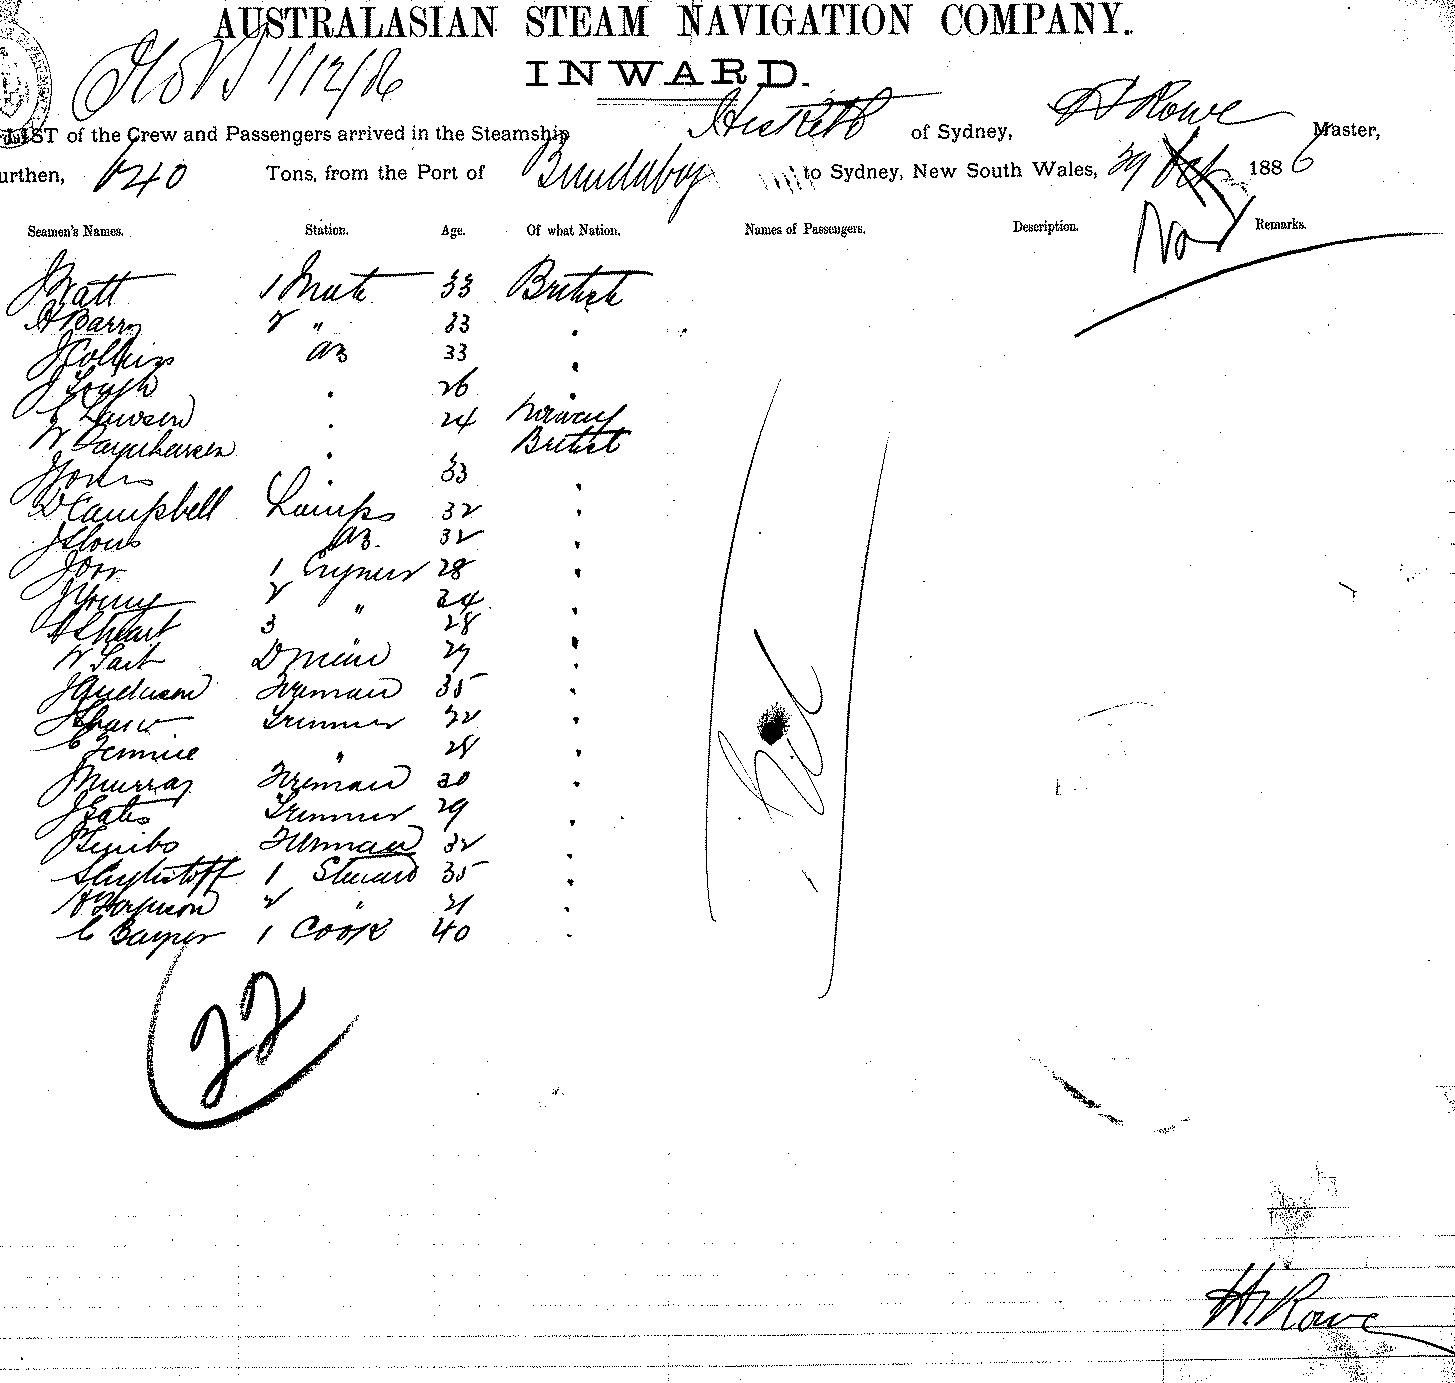 AUSTRALASIAN STEAM NAVIGATION COMPANY.
1/12/86
INWARD.
LIST of the Crew and Passengers arrived in the Steamship Hesketh of Sydney, H Rowe Master,
urthen, 640 Tons, from the Port of Bundaberg to Sydney, New South Wales, 29 Oct 1886
Nov
Seamen's Names. Station. Age. Of what Nation. Names of Passengers. Description. Remarks.
J Watt 1 Mate 33 British
H Barry 2 " 33 "
J Collins AB 33 "
J Lough " 26 "
C Lawson " 24 Norway
W " British
J Jones 33 "
D Campbell Lamps 32 "
J AB 32 "
J Orr 1 Engineer 28 "
J Young 2 " 24 "
A Stewart 3 " 28 "
W Tait 27 "
J Anderson Fireman 35 "
J Shaw Trimmer 32 "
C " 28 "
J Murray Fireman 30 "
J Gates Trimmer 29 "
J Fireman 32 "
1 Steward 35 "
A 2 " 21 "
C 1 Cook 40 "
Nil
22
H Rowe